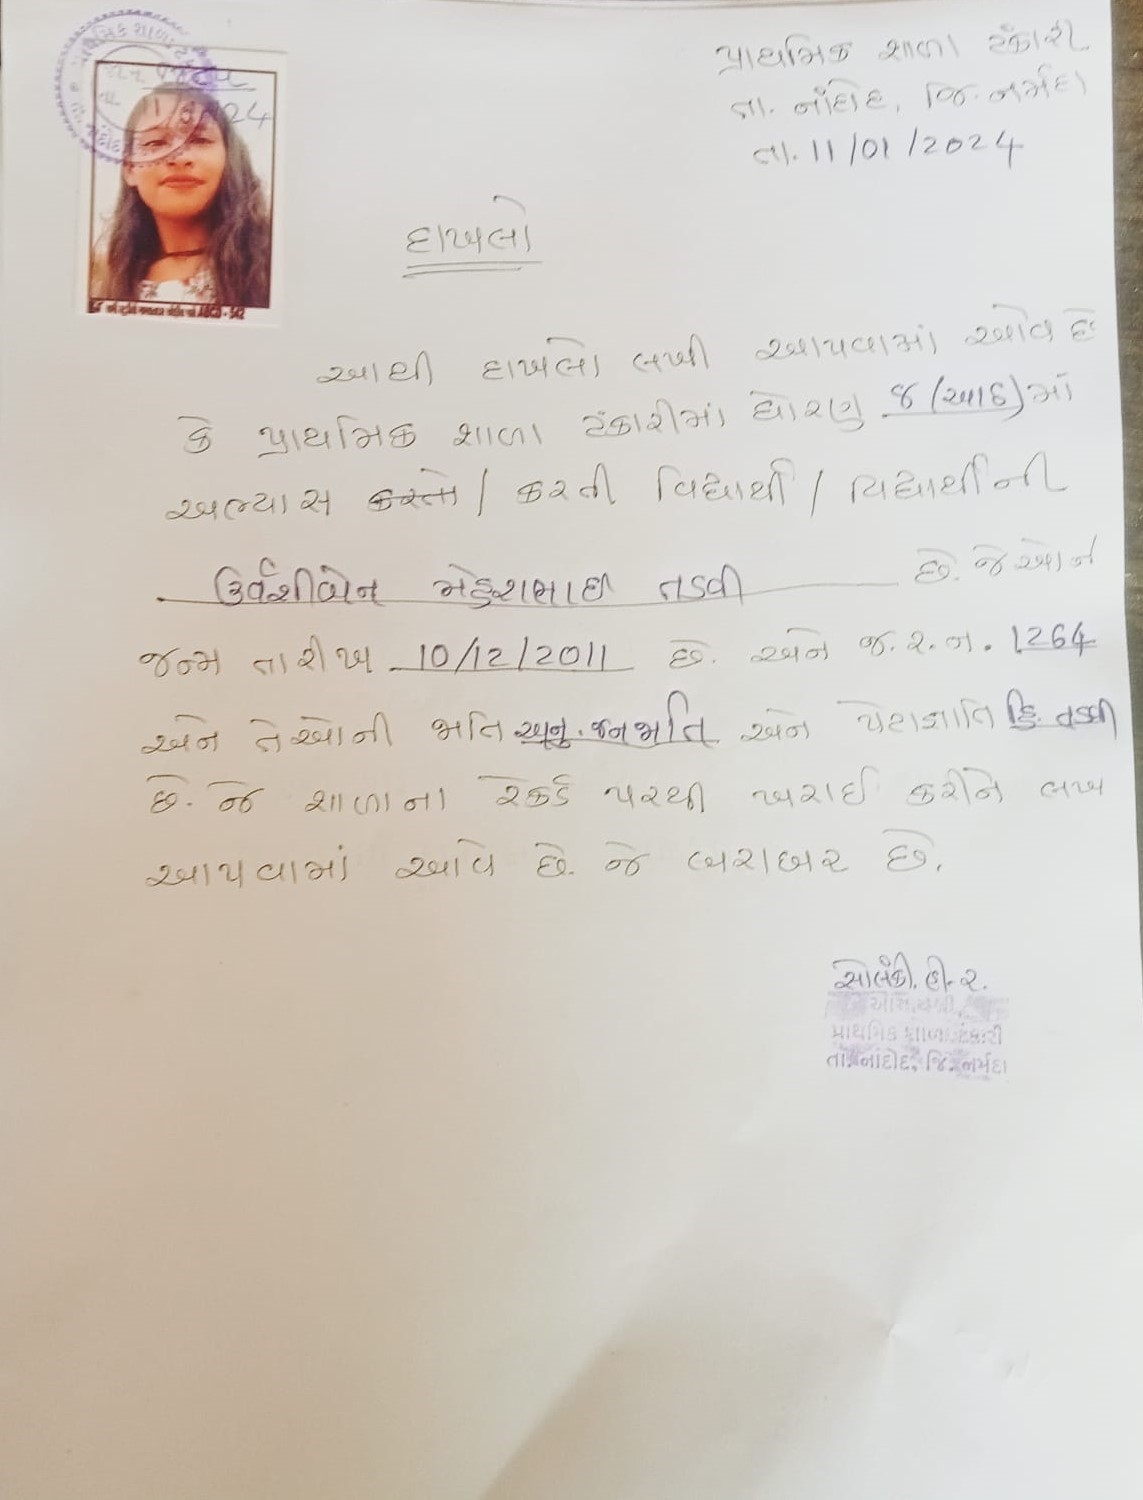 પ્રાથમિક શાળા ટંકારી
તા. નાંદોદ, જિ. નર્મદા
તા. 11/01/2024
દાખલો
આથી દાખલો લખી આપવામાં આવે છે
કે પ્રાથમિક શાળા ટંકારીમાં ધોરણ 8 (આઠ) માં
અભ્યાસ કરતો / કરતી વિદ્યાર્થી / વિદ્યાર્થીની
ઉર્વશીબેન મહેશભાઈ તડવી છે. જેઓની
જન્મ તારીખ 10/12/2011 છે. અને જ.ર.નં. 1264
અને તેઓની જાતિ અનુ. જનજાતિ અને પેટાજ્ઞાતિ હિ. તડવી
છે. જે શાળાના રેકર્ડ પરથી ખરાઈ કરીને લખી
આપવામાં આવે છે. જે બરાબર છે.
સોલંકી. હી. ર.
આચાર્યશ્રી
પ્રાથમિક શાળા ટંકારી
તા. નાંદોદ, જિ. નર્મદા